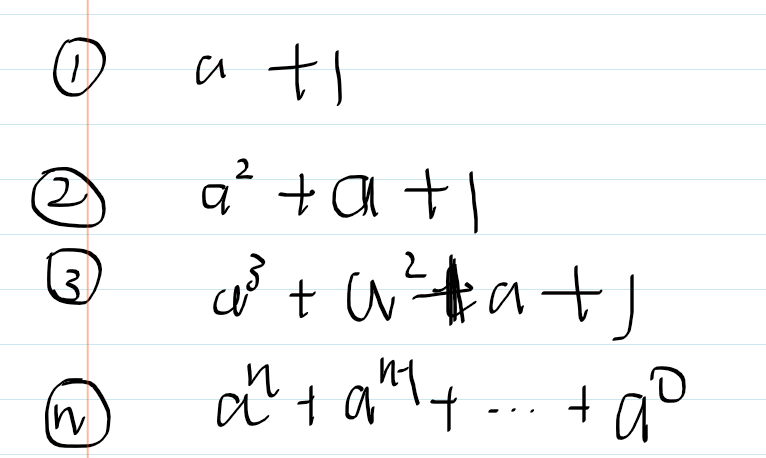 ① a + 1
② a² + a + 1
③ a³ + a² + a + 1
ⓝ aⁿ + aⁿ⁻¹ + ... + a⁰